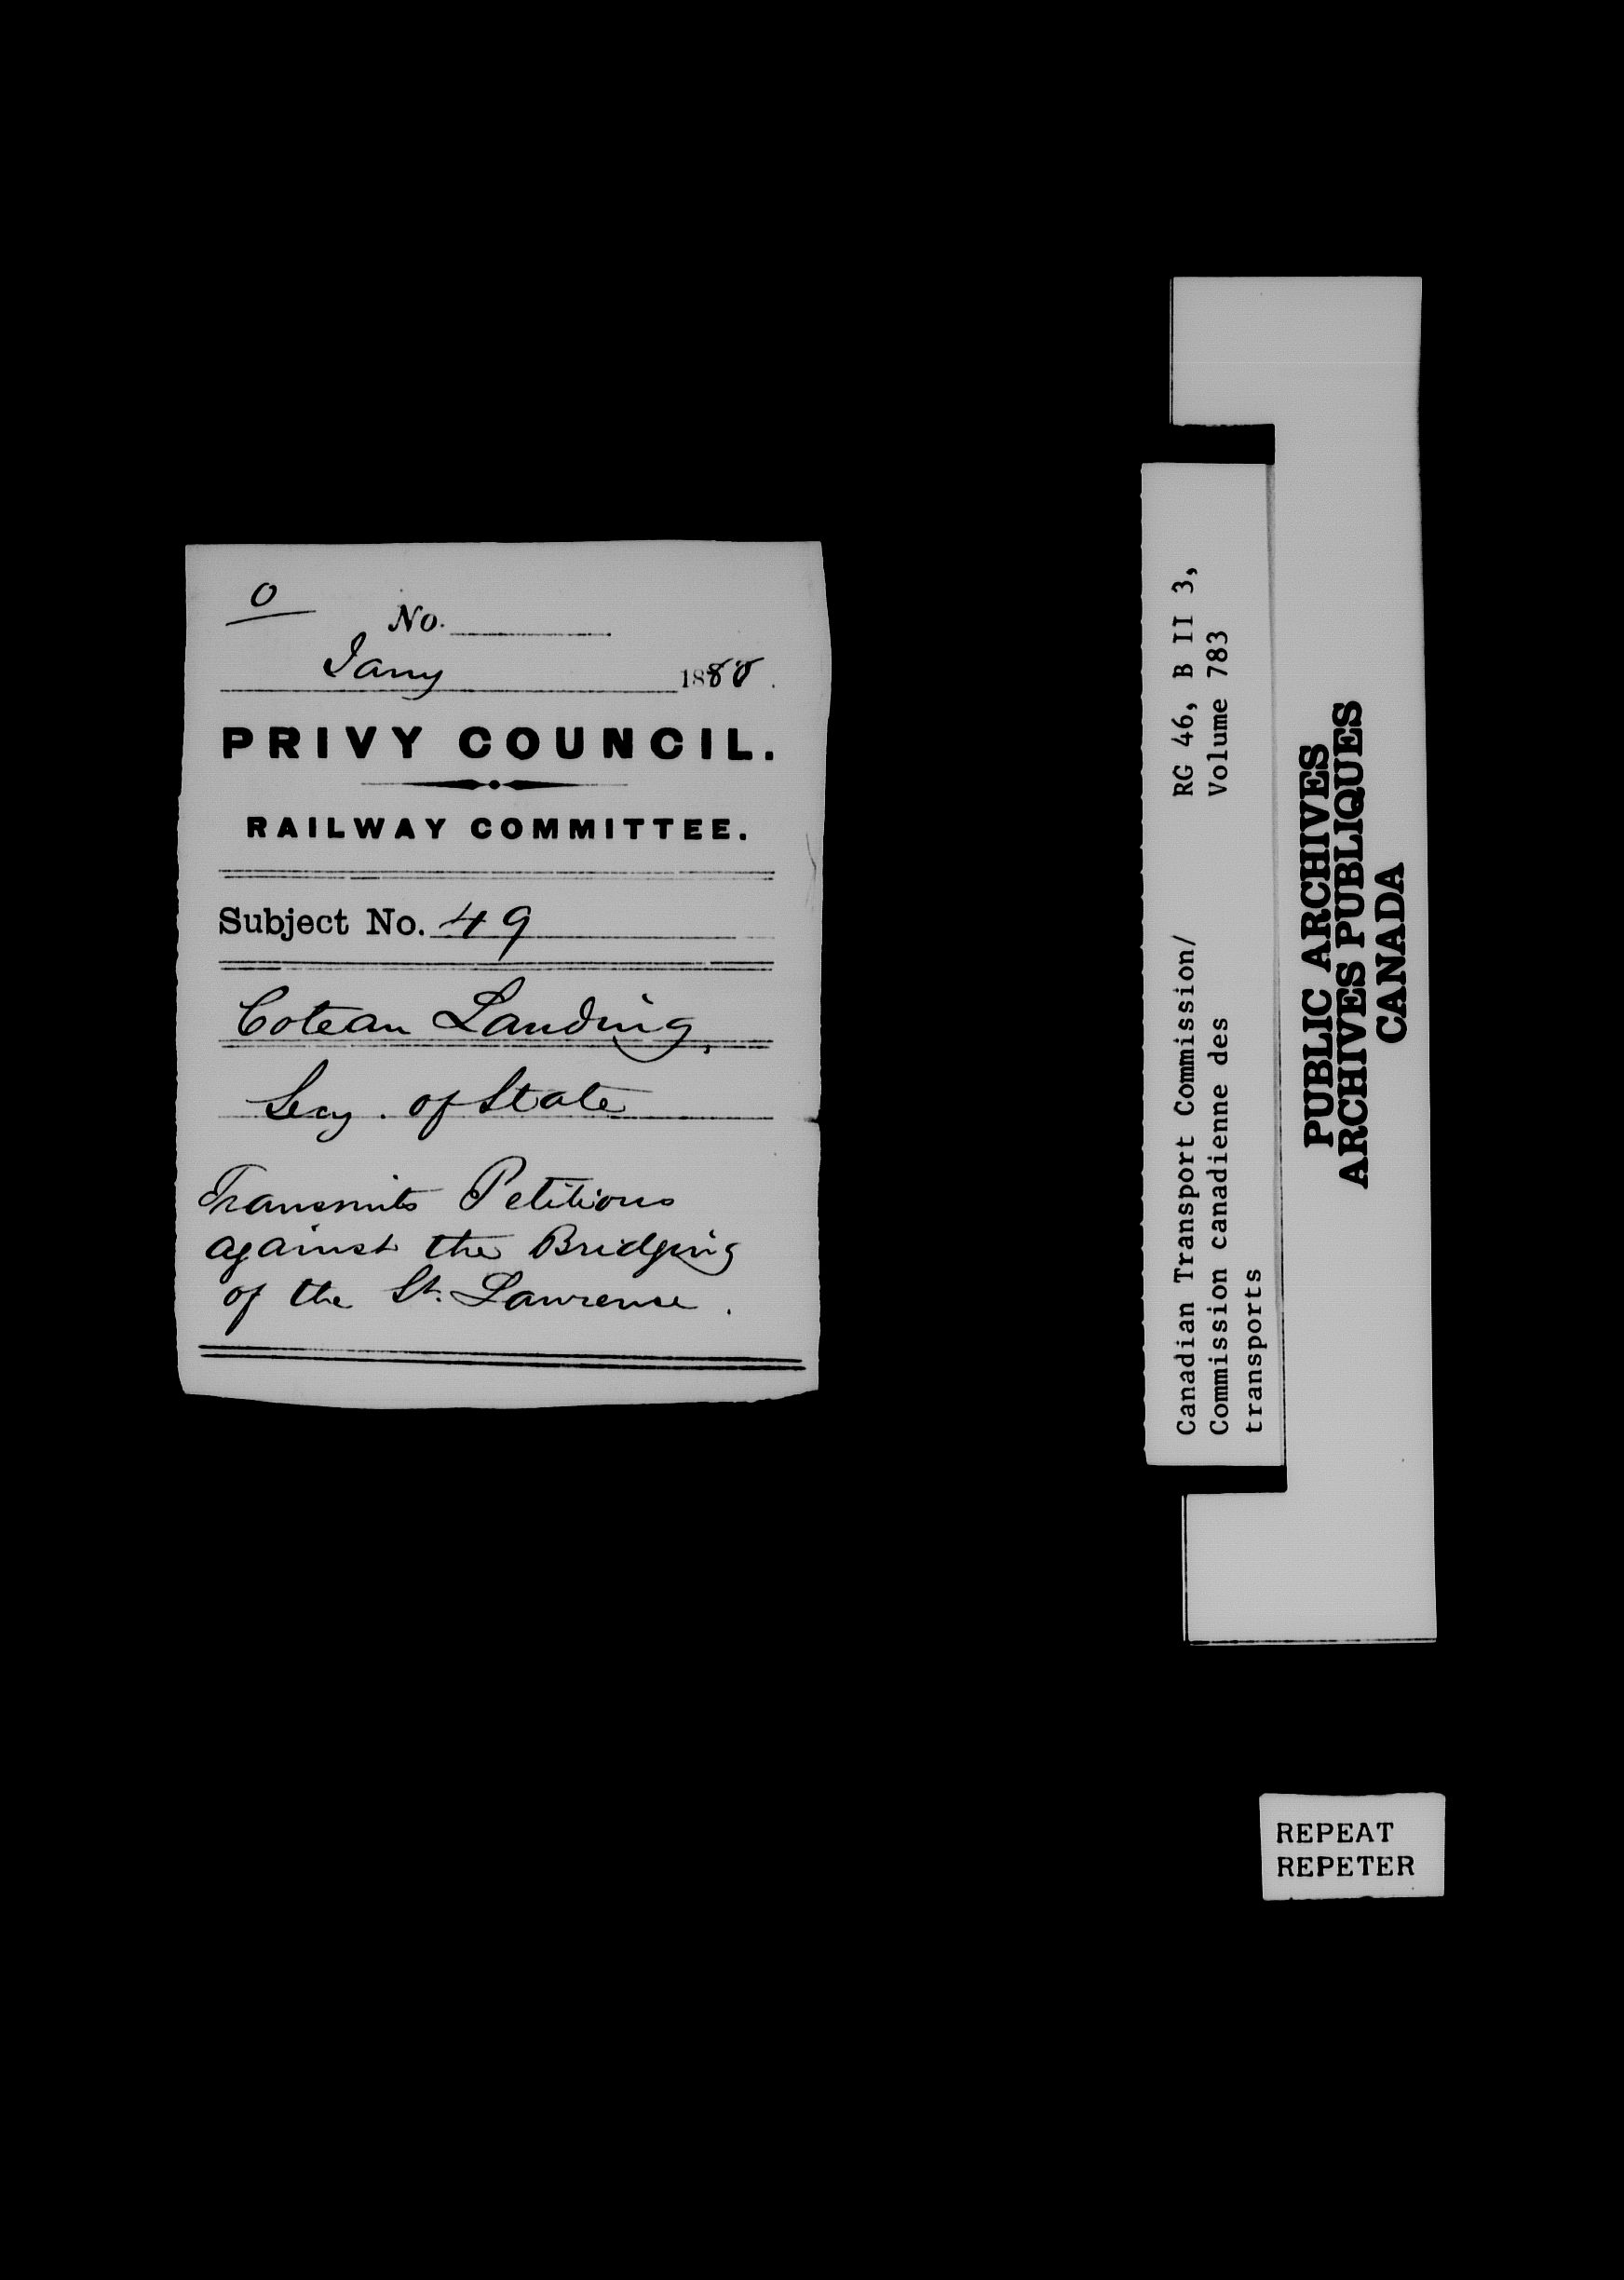 0
No.
Jany 1888.
PRIVY COUNCIL.
RAILWAY COMMITTEE.
Subject No. 49
Coteau Landing,
Secy. of State
Transmits Petitions
against the Bridging
of the St. Lawrence.
Canadian Transport Commission/ RG 46, B II 3,
Commission canadienne des Volume 783
transports
PUBLIC ARCHIVES
ARCHIVES PUBLIQUES
CANADA
REPEAT
REPETER